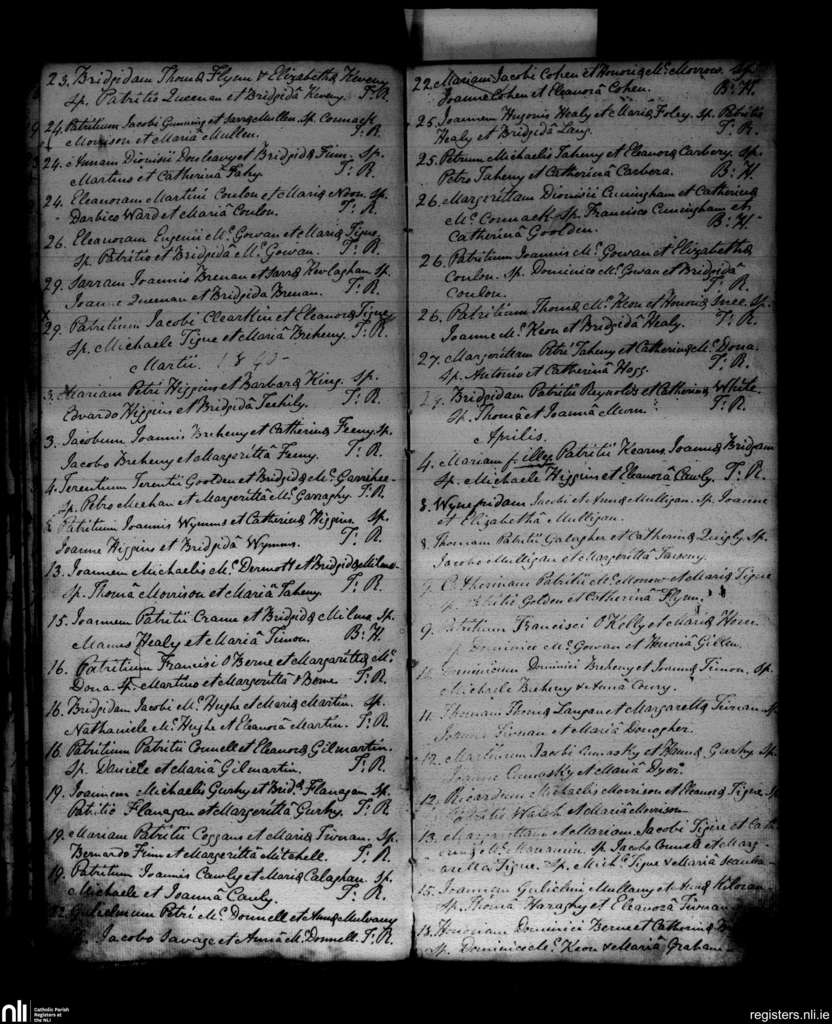 23. Bridgidam Thomæ Flynn & Elizabethæ Keveny
Sp. Patritio Queenan et Bridgidâ Keveny. T: R.
24. Patritium Jacobi Gunning et Sarræ Mullen. Sp. Cormack
Morrison et Mariâ Mullen. T: R.
24. Annam Dionisii Dunleavy et Bridgidæ Finn. Sp.
Martino et Catherinâ Fahy. T: R.
24. Eleanoram Martini Conlon et Mariæ Sp.
Ward et Mariâ Conlon. T: R.
26. Eleanoram Eugenii Mc. Gowan et Mariæ Tigue
Sp. Patritio et Bridgidâ Mc. Gowan. T: R.
29. Sarram Joannis Brenan et Sarræ Sp.
Joanne Queenan et Bridgida Brenan. T: R.
29. Patritium Jacobi et Eleanoræ Tigue
Sp. Michaele Tigue et Mariâ Breheny. T: R.
Martii. 1840
3. Mariam Petri Higgins et Barbaræ King. Sp.
Edvardo Higgins et Bridgidâ T: R.
3. Jacobum Joannis Breheny et Catherinæ Feeny. Sp.
Jacobo Breheny et Margerittâ Feeny. T: R.
4. Terentium Terentii Goolden et Bridgidæ Mc.
Sp. Petro Meehan et Margerittâ Mc. Garraghy. T: R.
Patritium Joannis Wymms et Catherinæ Higgins. Sp.
Joanne Higgins et Bridgidâ Wymms. T: R.
13. Joannem Michaelis Mc. Dermott et Bridgidæ
Sp. Thomâ Morrison et Mariâ Taheny. T: R.
15. Joannem Patritii Crane et Bridgidæ Sp.
Manus Healy et Mariâ Timon. B: H.
16. Patritium Francisi O'Berne et Margarittæ Mc.
Dona Sp. Martino et Margerittâ O'Berne T: R.
16. Bridgidam Jacobi Mc. Hugh et Mariæ Martin. Sp.
Nathaniele Mc. Hugh et Eleanorâ Martin. T: R.
16. Patritium Patritii Connell et Eleanoræ Gilmartin.
Sp. Daniele et Mariâ Gilmartin. T: R.
19. Joannem Michaelis Gurhy et Bridæ. Flanagan Sp.
Patritio Flanagan et Margerittâ Gurhy. T: R.
19. Mariam Patritii Coggans et Mariæ Tivnan. Sp.
Bernardo Finn et Margerittâ Mitchell. T: R.
19. Patritium Joannis Cawly et Mariæ Calaghan. Sp.
Michaele et Joannâ Cawly. T: R.
22. Gulielmum Petri Mc. Donnell et Annæ Mulvany
Jacobo Savage et Annâ Mc. Donnell. T: R.
22. Mariam Jacobi Cohen et Honoriæ Mc. Morrow. Sp.
Joanne Cohen et Eleanorâ Cohen. B: H.
25. Joannem Hugonis Healy et Mariæ Foley. Sp. Patritio
Healy et Bridgidâ Lang. T: R.
25. Petrum Michaelis Taheny et Eleanoræ Carbery. Sp.
Petro Taheny et Catherinâ Carbera. B: H.
26. Margerittam Dionisii Cuningham et Catherinæ
Mc. Cormack Sp. Francisco Cuningham et
Catherinâ Goolden. B: H.
26. Patritium Joannis Mc. Gowan et Elizabethæ
Conlon. Sp. Dominico Mc. Gowan et Bridgidâ
Conlon. T: R.
26. Patritium Thomæ Mc. Keon et Honoriæ Sp.
Joanne Mc. Keon et Bridgidâ Healy. T: R.
27. Margerittam Petri Taheny et Catherinæ Mc. Dona.
Sp. Antonio et Catherinâ Hogg. T: R.
Bridgidam Patritii Reynolds et Catherinæ White
Sp. Thomâ et Joannâ T: R.
Aprilis.
4. Mariam filleg. Patritii Kearns Joannæ
Sp. Michaele Higgins et Eleanorâ Cawly. T: R.
8. Wynefridam Jacobi et Annæ Mulligan. Sp. Joanne
et Elizabethâ Mulligan.
8. Thomam Patritii Galagher et Catherinæ Quigly. Sp.
Jacobo Mulligan et Margerittâ
9. Catherinam Patritii Mc. Morrow et Mariæ Tigue
Sp. Patritio Golden et Catherinâ Flynn.
9. Patritium Francisci O'Kelly et Mariæ
Sp. Dominico Mc. Gowan et Honoriâ Gillen.
Dominicum Dominici Breheny et Joannæ Timon. Sp.
Michaele Breheny & Annâ
11. Thomam Thomæ Langan et Margarettæ Tivnan. Sp.
Tivnan et Mariâ Donogher.
12. Martinum Jacobi et Gurhy. Sp.
et Mariâ Dyer.
12. Ricardum Michaelis Morrison et Eleanoræ Tigue. Sp.
Walsh et Mariâ Morrison
13. Margerittam et Mariam Jacobi Tigue et
Sp. Jacobo Connell et
Tigue. Sp. Mich. Tigue & Mariâ
15. Joannem Gulielmi Mullany et Annæ Kiloran
Sp. Thomâ Haraghy et Eleanorâ Tivnan
18. Honoriam Dominici Berne et Catherinæ
Sp. Dominico Mc. Keon & Mariâ Graham
nli
Catholic Parish
Registers at
the NLI
registers.nli.ie